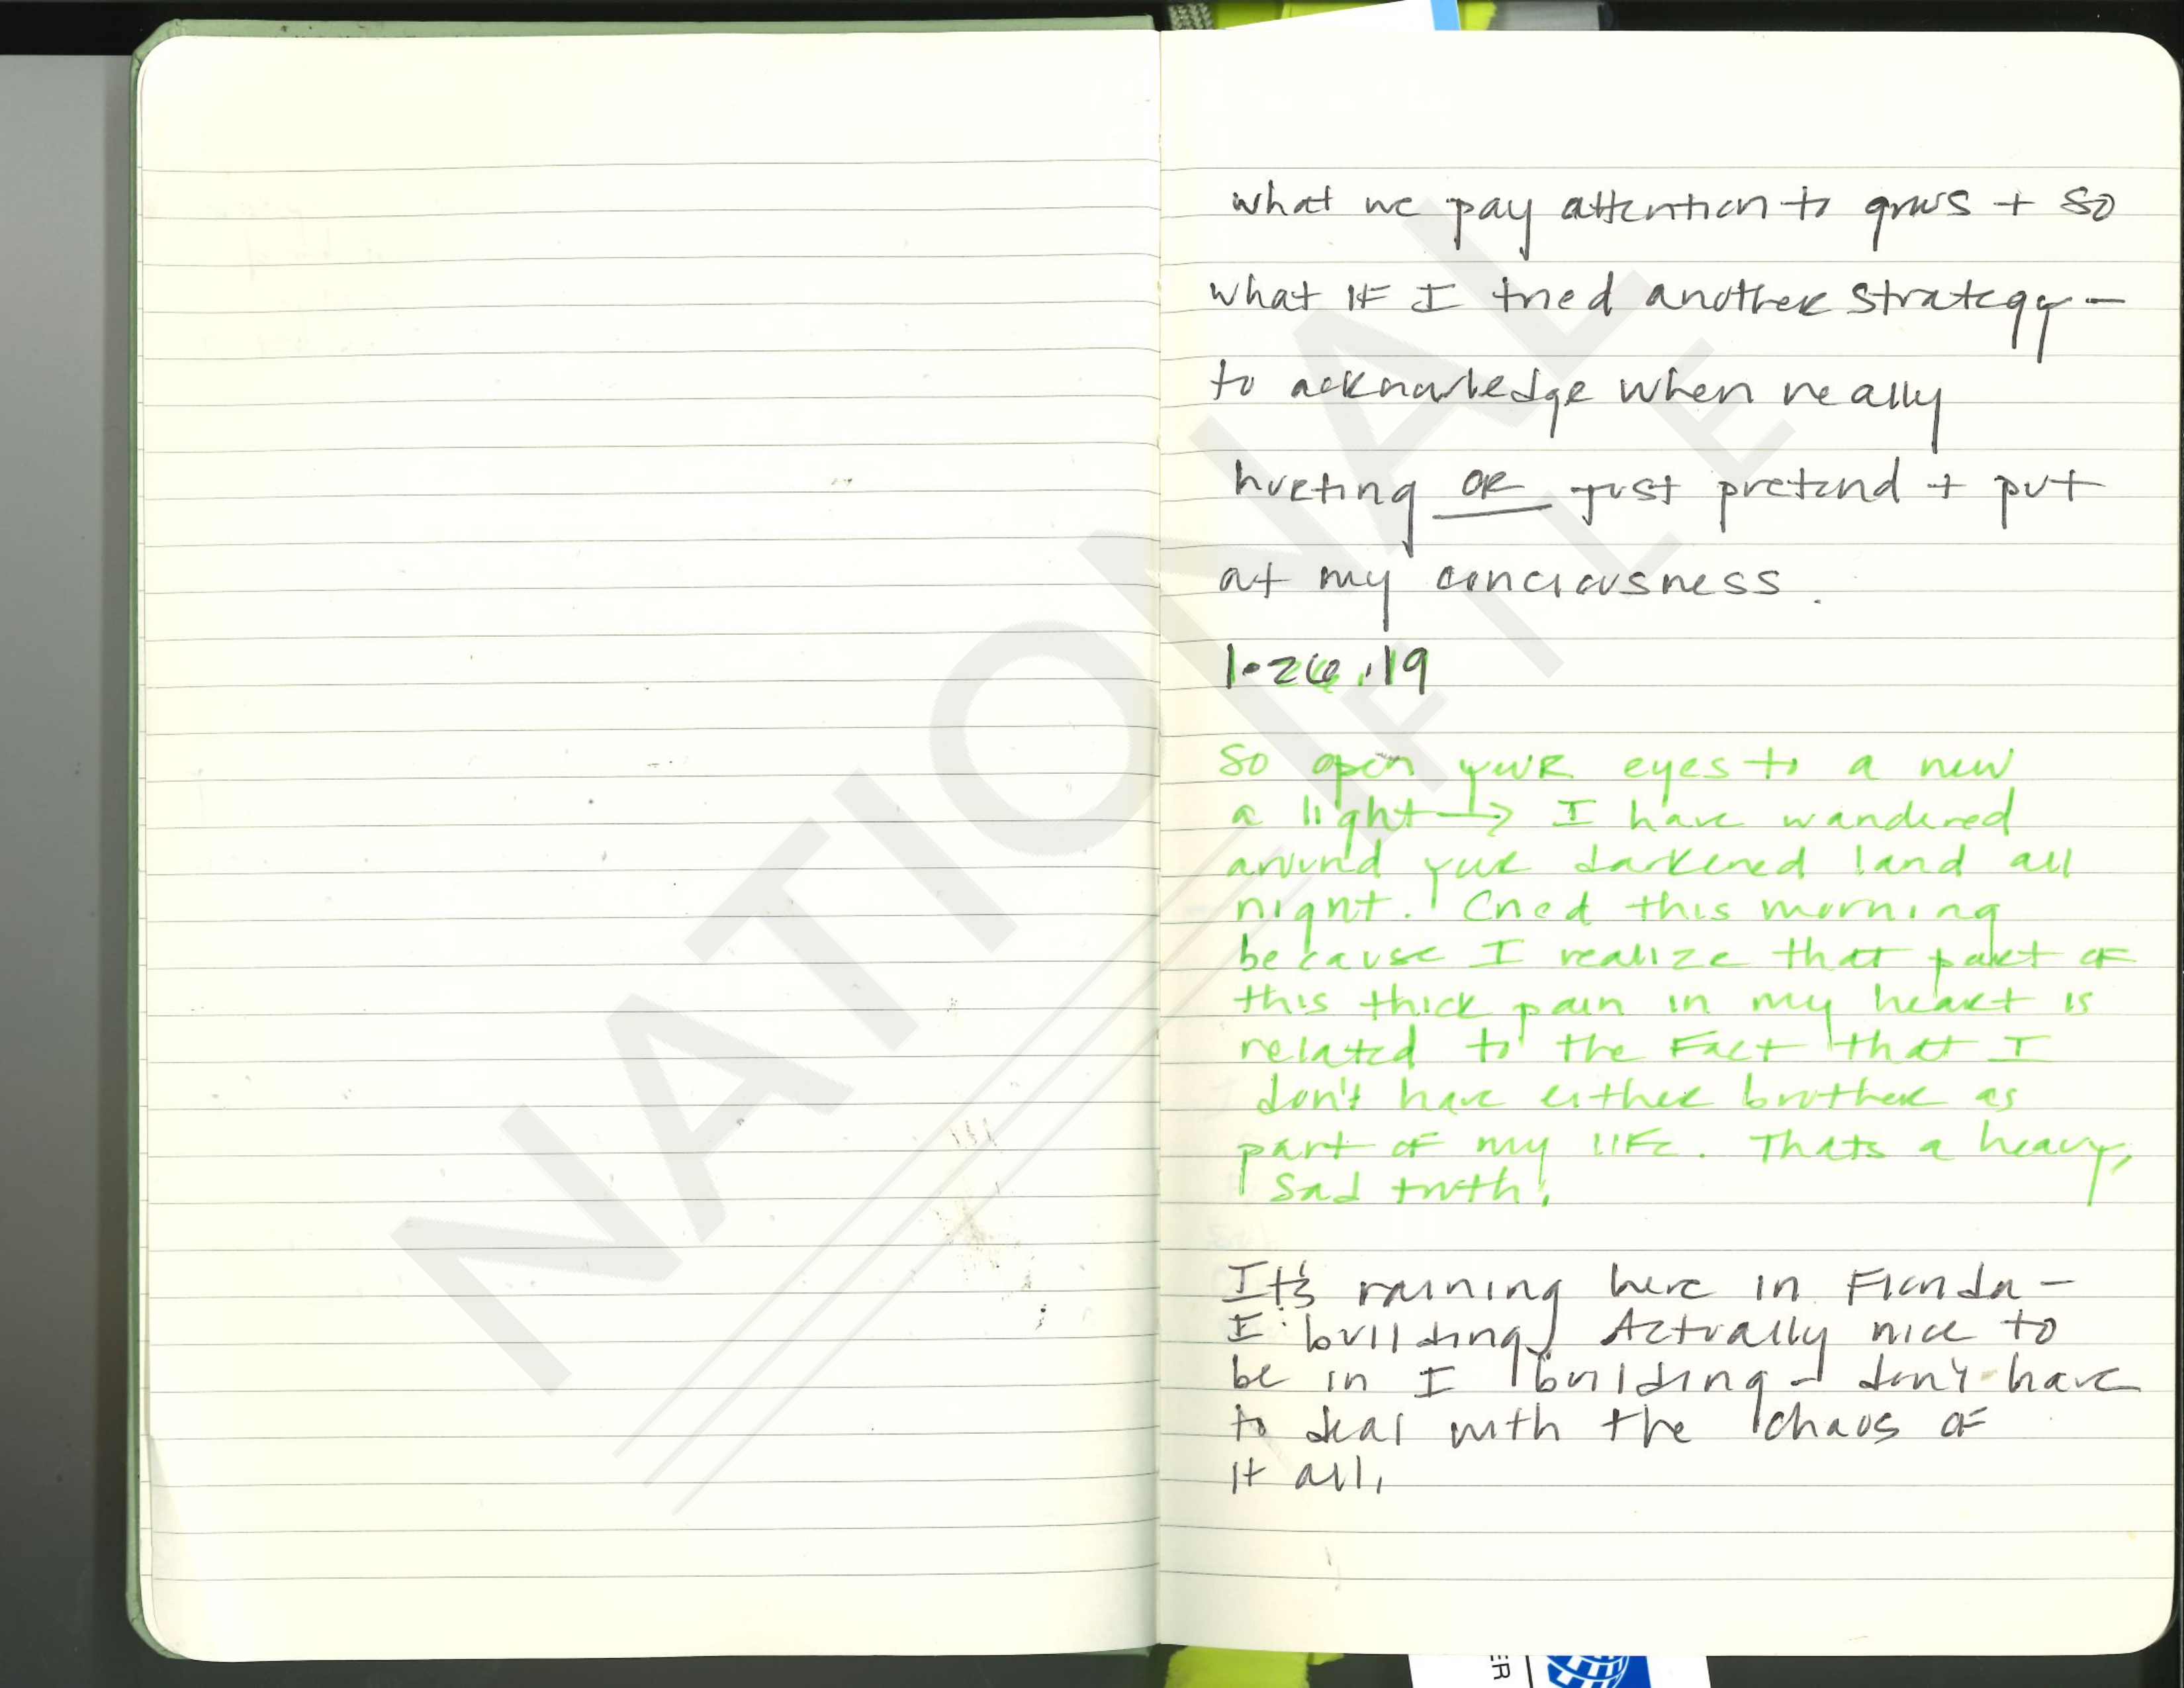 what we pay attention to grows + so
what IF I tried another strategy -
to acknowledge when really
hurting OR just pretend + put
at my conciousness.
1.26.19
So open your eyes to a new
a light → I have wandered
around your darkened land all
night. Cried this morning
because I realize that part of
this thick pain in my heart is
related to the Fact that I
don't have either brother as
part of my life. Thats a heavy,
sad truth.
It's raining here in Florida -
I building. Actually nice to
be in I building - don't have
to deal with the chaos of
it all.
NATIONAL
FILE
ER